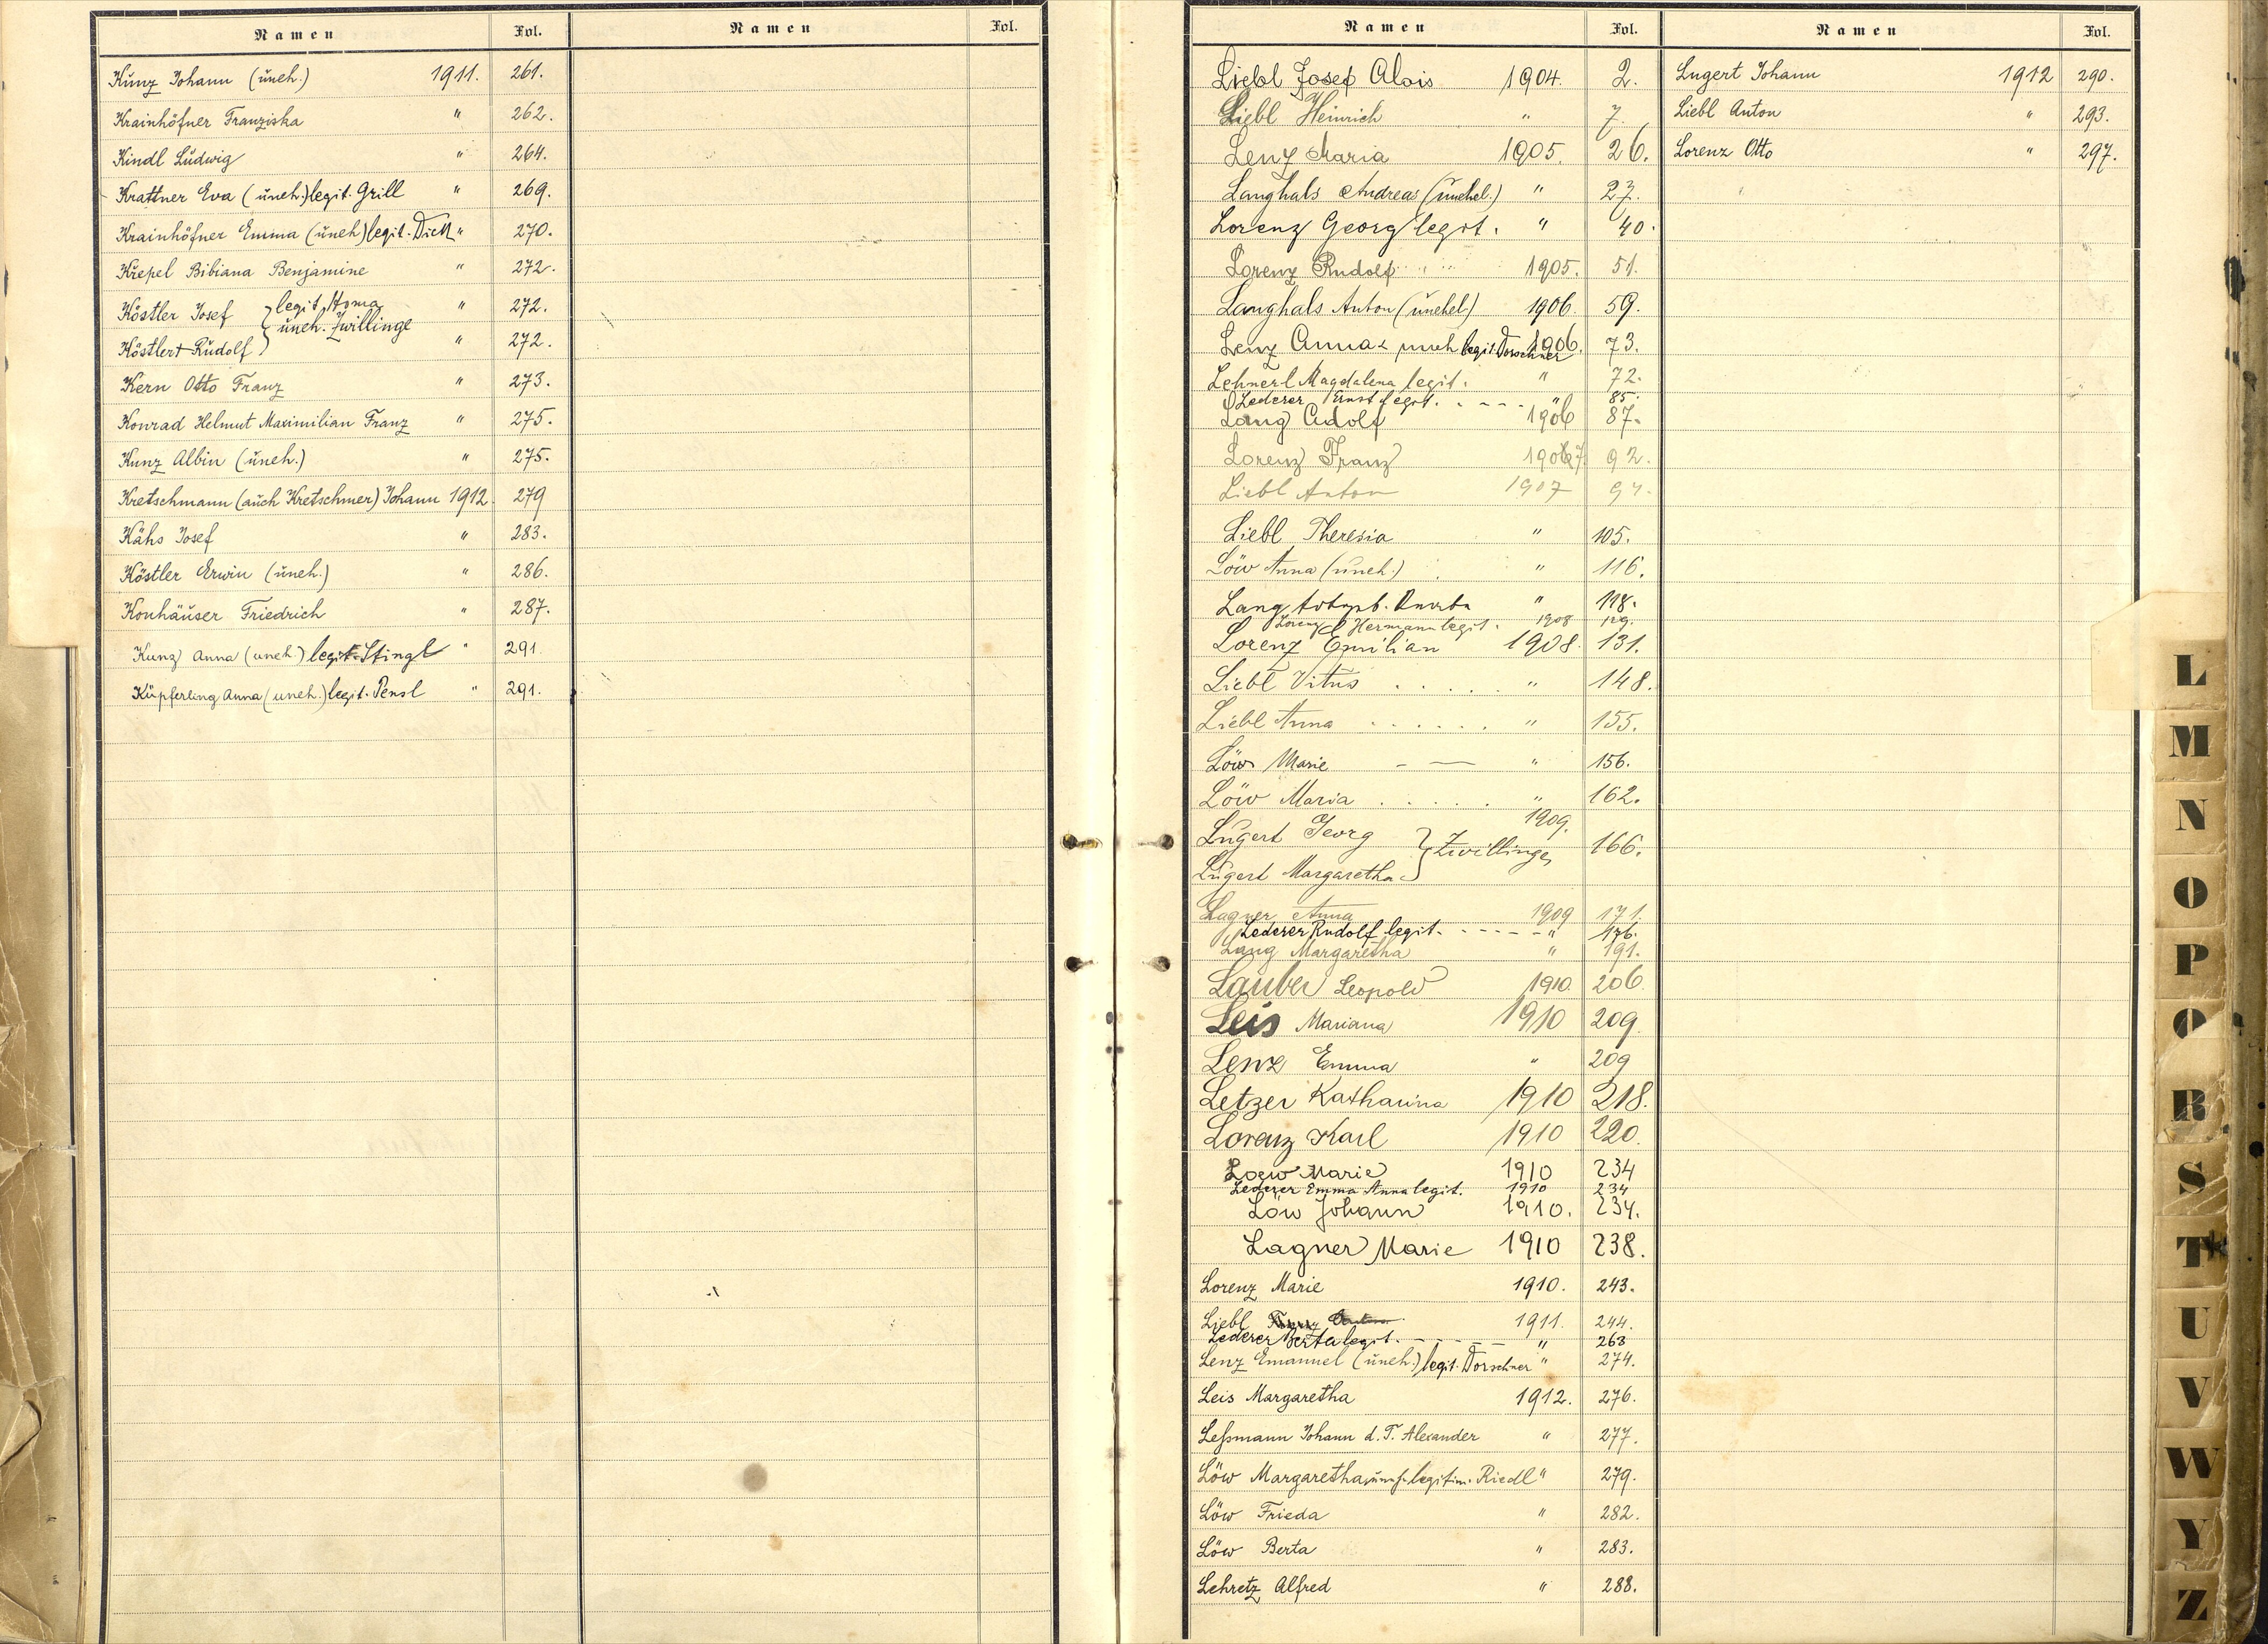 Namen Fol. Namen Fol.
Kunz Johann (úneh.) 1911. 261.
Krainhöfner Franziska " 262.
Kindl Lúdwig " 264.
Krattner Eva (úneh.) legit. Grill " 269.
Krainhöfner Emma (úneh) legit. Dick " 270.
Křepel Bibiana Benjamine " 272.
Köstler Josef } legit, Homa " 272.
úneh. Zwillinge
Köstler + Rúdolf } " 272.
Kern Otto Franz " 273.
Konrad Helmut Maximilian Franz " 275.
Kunz Albin (úneh.) " 275.
Kretschmann (aúch Kretschmer) Johann 1912. 279
Kähs Josef " 283.
Köstler Erwin (úneh.) " 286.
Konhäúser Friedrich " 287.
Kunz Anna (uneh.) legit. Stingl " 291.
Küpferling Anna (uneh.) legit. Pensl " 291.
Namen Fol. Namen Fol.
Liebl Josef Alois 1904. 2.
Liebl Heinrich " 7.
Lenz Maria 1905. 26.
Langhals Andreas (únehel.) " 27.
Lorenz Georg legit. " 40.
Lorenz Rudolf 1905. 51.
Langhals Anton (únehel) 1906. 59.
Lenz Anna uneh legit. Dorschner 1906. 73.
Lehnerl Magdalena legit. " 72.
Lederer Ernst legit. - - - " 85.
Lang Adolf 1906 87.
Lorenz Franz 1907. 92.
Liebl Anton 1907
Liebl Theresia " 105.
Löw Anna (úneh.) " 116.
Lang " 118.
Lorenz Hermann legit. 1908 129.
Lorenz Emilian 1908. 131.
Liebl Vitús . . . . . " 148.
Liebl Anna . . . . . . " 155.
Löw Marie - — " 156.
Löw Maria . . . . . " 162.
Lúgert Georg } Zwillinge, 1909. 166.
Lúgert Margaretha }
Lagner Anna 1909 171.
Lederer Rudolf legit. - - - - - " 176.
Lang Margaretha " 191.
Lauber Leopold 1910. 206.
Leis Mariana 1910 209.
Lenz Emma " 209
Letzer Katharina 1910 218.
Lorenz Karl 1910 220.
Loew Marie 1910 234
Lederer Emma Anna legit. 1910 234
Löw Johann 1910. 234.
Lagner Marie 1910 238.
Lorenz Marie 1910. 243.
Liebl 1911. 244.
Lederer Berta legit. - - - - - " 263
Lenz Emanuel (úneh.) legit. Dorschner " 274.
Leis Margaretha 1912. 276.
Leßmann Johann d. T. Alexander " 277.
Löw Margaretha, úneh. legitim. Riedl " 279.
Löw Frieda " 282.
Löw Berta " 283.
Lehretz Alfred " 288.
Lugert Johann 1912 290.
Liebl Anton " 293.
Lorenz Otto " 297.
L
M
N
O
P
R
S
T
U
V
W
Y
Z